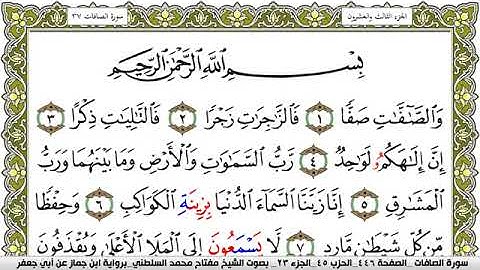 الجزء الثالث والعشرون
سورة الصافات ٣٧
بِسْمِ اللَّهِ الرَّحْمَٰنِ الرَّحِيمِ
وَالصَّٰٓفَّٰتِ صَفًّا ١ فَالزَّٰجِرَٰتِ زَجْرًا ٢ فَالتَّٰلِيَٰتِ ذِكْرًا ٣
إِنَّ إِلَٰهَكُمُۥ لَوَٰحِدٌ ٤ رَبُّ السَّمَٰوَٰتِ وَالْأَرْضِ وَمَا بَيْنَهُمَا وَرَبُّ
الْمَشَٰرِقِ ٥ إِنَّا زَيَّنَّا السَّمَآءَ الدُّنْيَا بِزِينَةِ الْكَوَاكِبِ ٦ وَحِفْظًا
مِّن كُلِّ شَيْطَٰنٍ مَّارِدٍ ٧ لَّا يَسْمَعُونَ إِلَى الْمَلَإِ الْأَعْلَىٰ وَيُقْذَفُونَ
سورة الصافات _الصفحة ٤٤٦_ الحزب ٤٥_ الجزء ٢٣_ بصوت الشيخ مفتاح محمد السلطني_ برواية ابن جماز عن أبي جعفر